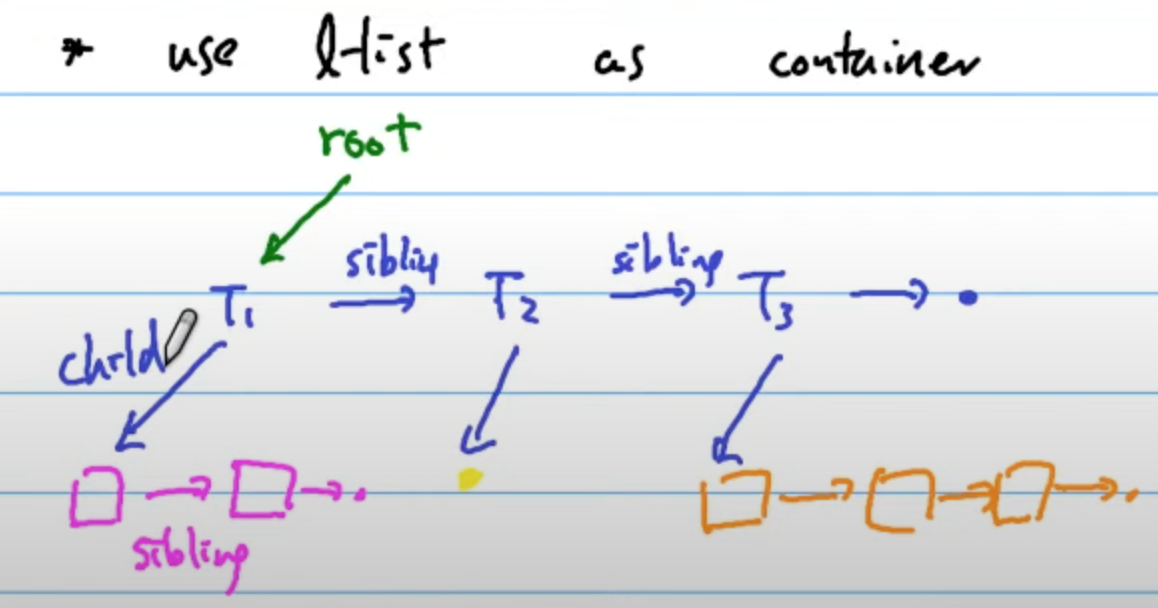 * use l-list as container
root
sibling sibling
T1 T2 T3
child
sibling